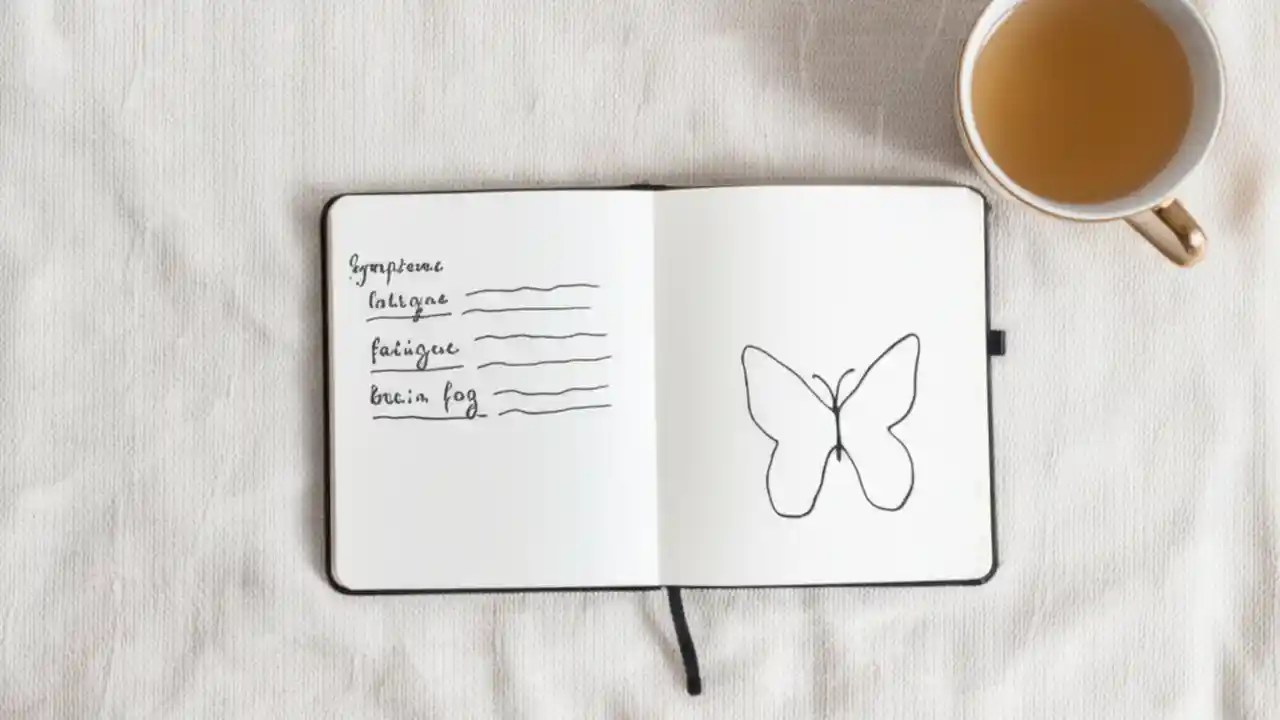 Symptoms
fatigue
fatigue
Brain fog